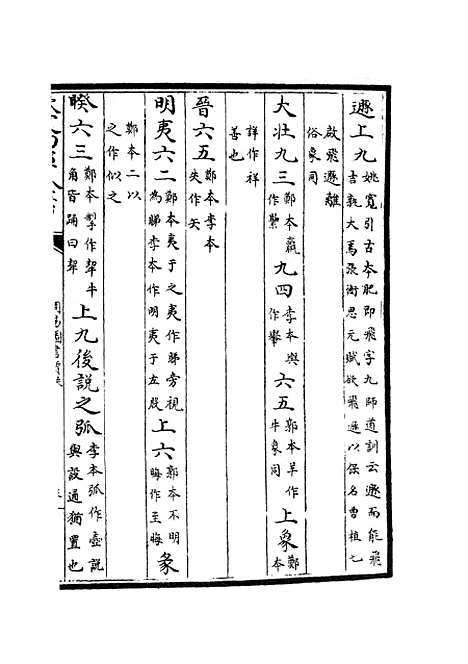 遯上九姚寛引古本肥即飛字九師道訓云遯而能飛吉孰大焉張衡思元賦欲飛遯以保名曹植七
啟飛遯離俗象同
大壯九三鄭本羸作纍九四李本輿作轝六五鄭本羊作牛象同上象鄭本
詳作祥善也
晉六五鄭本李本失作矢
明夷六二鄭本夷于之夷作睇旁視為睇李本作明夷于左股上六郭本不明晦作至晦象
鄭本二以之作似之
睽六三鄭本掣作挈牛角皆踊曰挈上九後說之弧李本弧作壺說與設通猶置也
周易圖書質疑